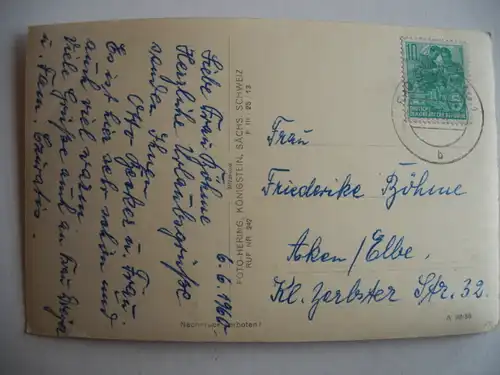 6.6.1960.
Liebe Frau Böhme
Herzliche Urlaubsgrüße
senden Ihnen
Otto Becker u. Frau.
Es ist hier sehr schön und
auch viel warm.
Viele Grüße auch an Frau
u. Fam.
FOTO-HERING, KÖNIGSTEIN, SÄCHS. SCHWEIZ
RUF NR 340
F III 26 13
10
Frau
Friederike Böhme
Aken/Elbe,
Kl. Zerbster Str. 32.
Nachdruck verboten!